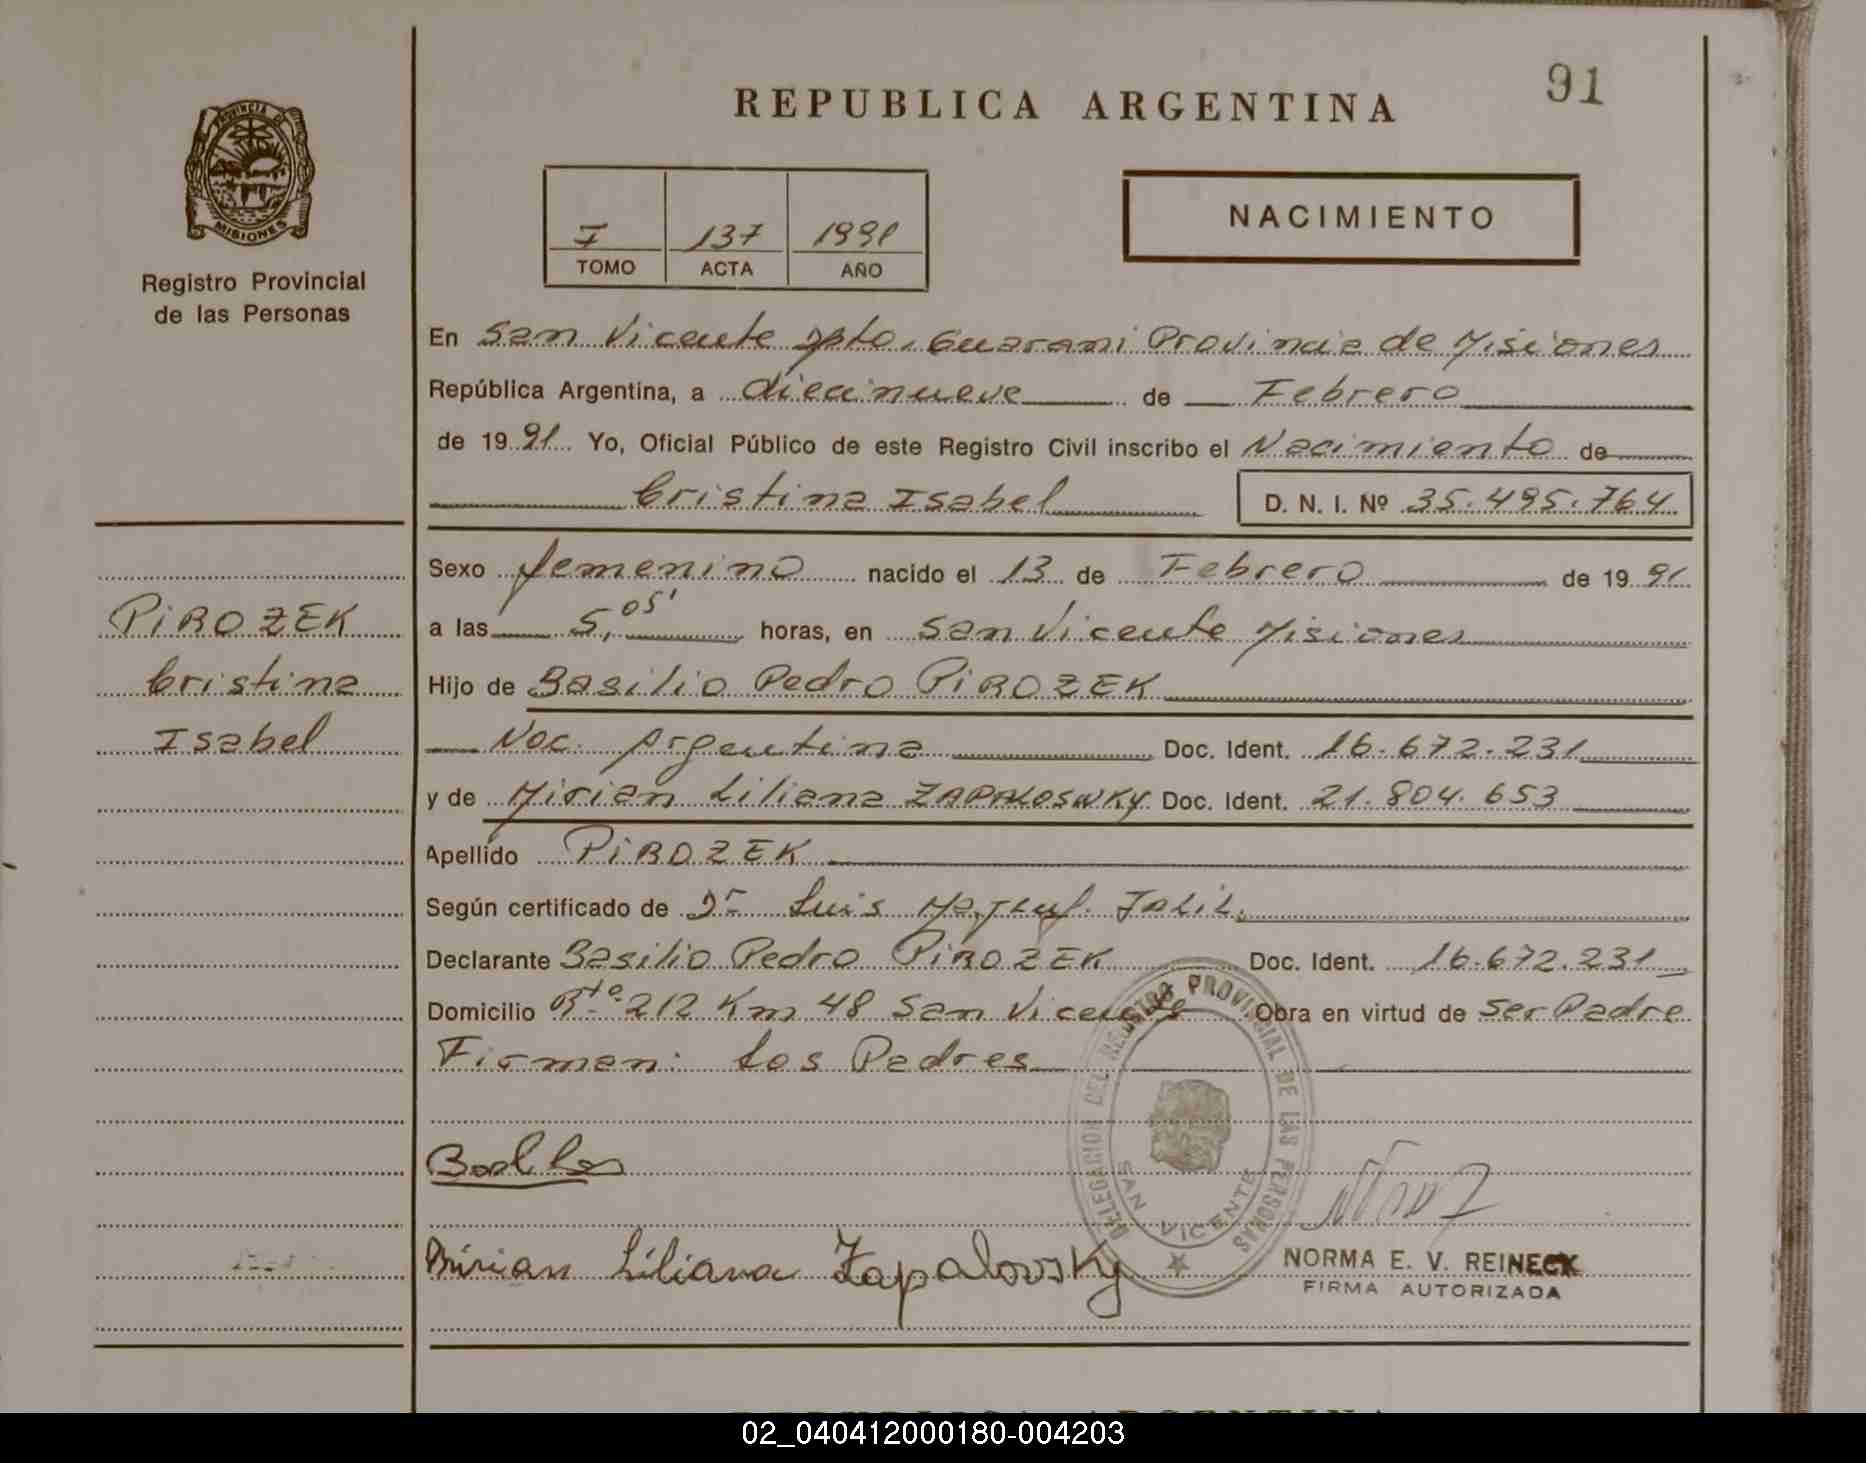 91
REPUBLICA ARGENTINA
PROVINCIA DE
MISIONES
Registro Provincial
de las Personas
I 137 1991
TOMO ACTA AÑO
NACIMIENTO
En San Vicente Dpto. Guarani Provincia de Misiones
República Argentina, a diecinueve de Febrero
de 1991 Yo, Oficial Público de este Registro Civil inscribo el Nacimiento de
Cristina Isabel D. N. I. Nº 35.495.764
PIROZEK
Cristina
Isabel
Sexo femenino nacido el 13 de Febrero de 1991
a las 5,05' horas, en San Vicente Misiones
Hijo de Basilio Pedro PIROZEK
Nac. Argentina Doc. Ident. 16.672.231
y de Mirian Liliana ZAPALOSWKY Doc. Ident. 21.804.653
Apellido PIROZEK
Según certificado de Dr. Luis JALIL.
Declarante Basilio Pedro PIROZEK Doc. Ident. 16.672.231
Domicilio Rta. 212 Km 48 San Vicente Obra en virtud de ser Padre
Firman: Los Padres
DELEGACION DEL REGISTRO PROVINCIAL DE LAS PERSONAS
SAN VICENTE
Mirian Liliana Zapalovsky
NORMA E. V. REINECK
FIRMA AUTORIZADA
REPUBLICA ARGENTINA
02_040412000180-004203